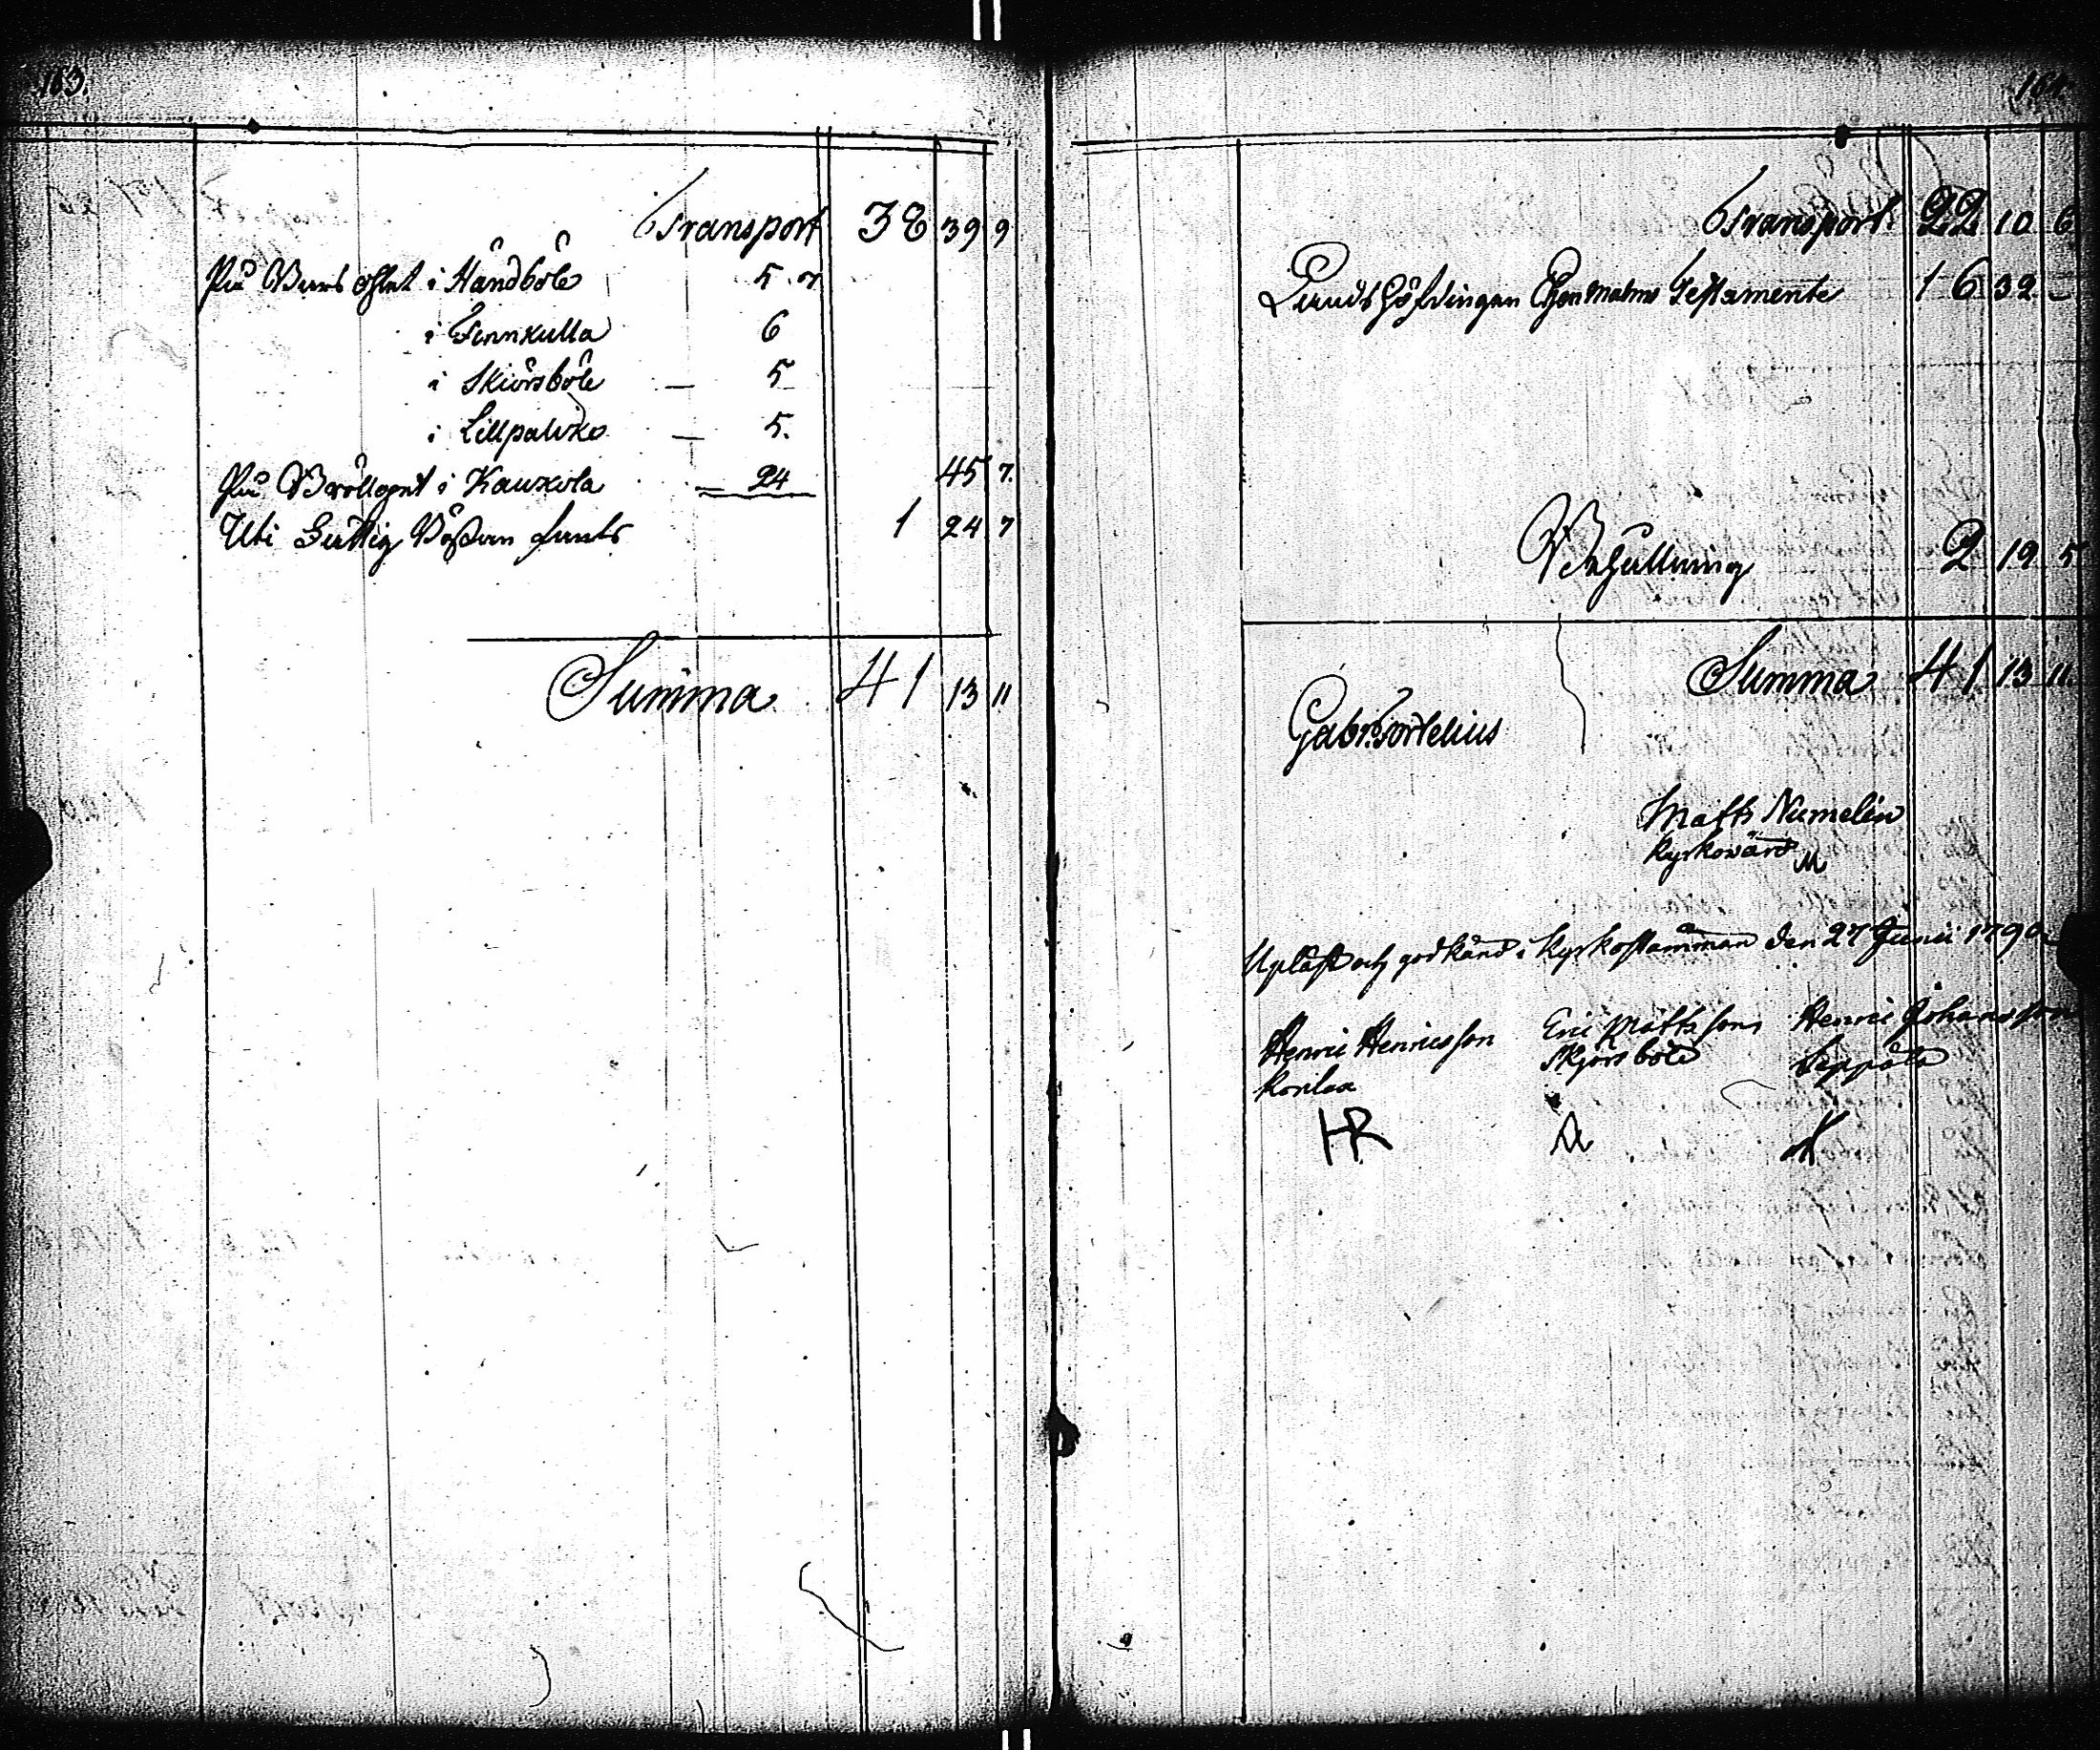 163.
Transport 38 39 9
På Barns ohlet i Håndböle 5. 7
i Finnkulla 6
i Skiörsböle — 5
i Lillpalvko — 5.
På Bröllopet i Kauxola — 24 45 7.
Uti Fattig Bössan funts 1 24 7
Summa 41 13 11
164
Transport 22 10 6
Landshöfdingen Ehrenmalms Testamente 16 32 —
Behållning 2 19 5
Summa 41 13 11
Gabr. Fortelius
Matts Numelin
Kyrkovärd
M
Upläst och godkänd i Kyrkostämman den 27 Junii 1790
Henric Henricsson Eric Mattsson Henric Johansson
Konlaa Skjörsböle Seppälä
HR